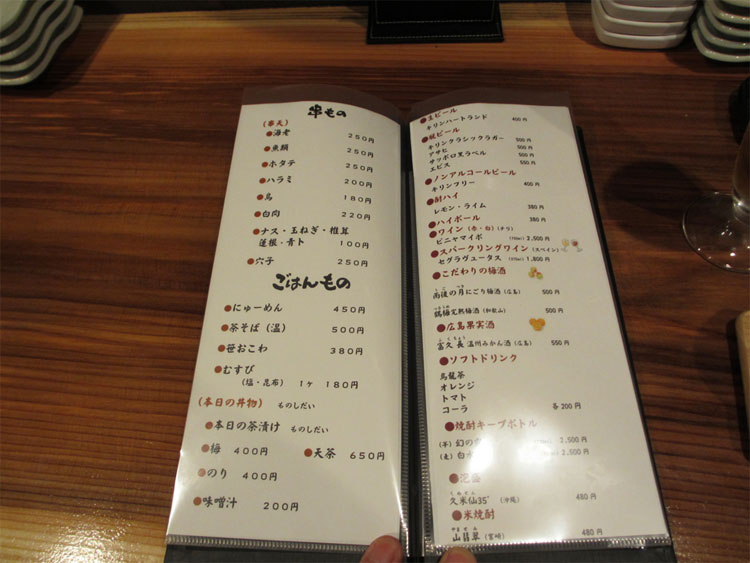 串もの
(串天)
●海老 250円
●魚鯛 250円
●ホタテ 250円
●ハラミ 200円
●鳥 180円
●白肉 220円
●ナス・玉ねぎ・椎茸
蓮根・青ト 100円
●穴子 250円
ごはんもの
●にゅーめん 450円
●茶そば(温) 500円
●笹おこわ 380円
●むすび
(塩・昆布) 1ヶ 180円
(本日の丼物) ものしだい
●本日の茶漬け ものしだい
●梅 400円 ●天茶 650円
●のり 400円
●味噌汁 200円
●生ビール
キリンハートランド 400円
●瓶ビール
キリンクラシックラガー 500円
アサヒ 500円
サッポロ黒ラベル 500円
エビス 550円
●ノンアルコールビール
キリンフリー 400円
●酎ハイ
レモン・ライム 380円
●ハイボール 380円
●ワイン(赤・白)(チリ)
ビニャマイポ 2,500円
●スパークリングワイン(スペイン)
セグラヴュータス 1,800円
●こだわりの梅酒
雨後の月にごり梅酒(広島) 500円
鶴梅完熟梅酒(和歌山) 500円
●広島果実酒
富久長 温州みかん酒(広島) 550円
●ソフトドリンク
烏龍茶
オレンジ
トマト
コーラ 各200円
●焼酎キープボトル
(芋)幻の 2,500円
(麦)白 2,500円
●泡盛
久米仙35°(沖縄) 480円
●米焼酎
山翡翠(宮崎) 480円